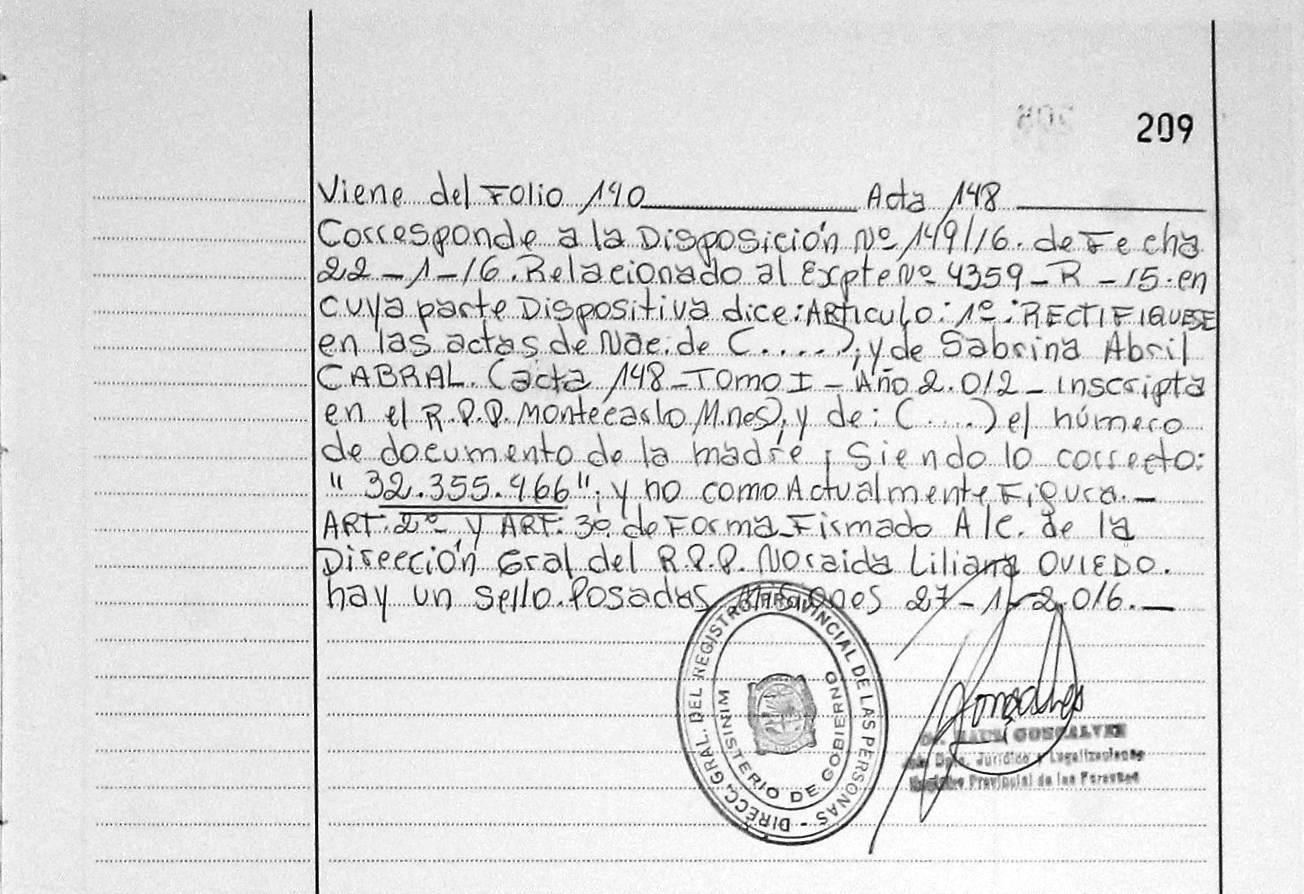 209
Viene del Folio 190 Acta 148
Corresponde a la Disposición Nº 149/16. de Fecha
22-1-16. Relacionado al Expte Nº 4359-R-15. en
cuya parte Dispositiva dice: ARticulo: 1º: RECTIFIQUESE
en las actas de Nac. de C.....); y de Sabrina Abril
CABRAL. (acta 148-Tomo I - Año 2.012 - inscripta
en el R.P.P. Montecarlo M.nes); y de: (....) el número
de documento de la madre, Siendo lo correcto:
"32.355.466"; y no como Actualmente Figura.-
ART. 2º y ART: 3º. de Forma Firmado A/c. de la
Dirección Gral del R.P.P. Noraida Liliana OVIEDO.
hay un sello. Posadas, Misiones 27-1-2.016.-
DIRECC. GRAL. DEL REGISTRO PROVINCIAL DE LAS PERSONAS -
MINISTERIO DE GOBIERNO
Gonçalves
GONCALVES
Jurídico y Legalizaciones
Registro Provincial de las Personas